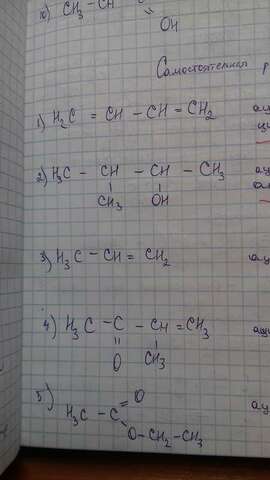 10) CH3 — CH
OH
Самостоятельная р
1) H2C = CH — CH = CH2 ац
ци
2) H3C — CH — CH — CH3 ац
CH3 OH
3) H3C — CH = CH2 ац
4) H3C — C — CH = CH3 ац
O CH3
5) H3C — C = O ац
O — CH2 — CH3